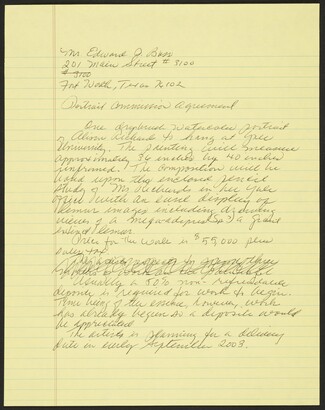 Mr. Edward J. Bass
201 Main Street #3100
# 3100
Fort Worth, Texas 76102
Portrait Commission Agreement
One drybrush watercolor portrait
of Alison Richard to hang at Yale
University. The painting will measure
approximately 34 inches by 40 inches
unframed. The composition will be
based upon the enclosed pencil
study of Ms Richards in her Yale
office with an easel display of
lemur images including drawing
views of a megaladapis, a giant
extinct lemur.
Price for the work is $55,000 plus
sales tax.
Usually a 50% non-refundable
deposit is required for work to begin.
time being of the essence, however, work
has already begun so a deposit would
be appreciated.
The artist is planning for a delivery
date in early September 2003.